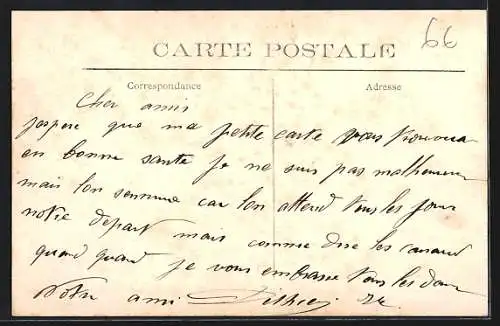 66
CARTE POSTALE
Correspondance
Adresse
Cher amis
jespere que ma petite carte vous trouvera
en bonne sante je ne suis pas malheureux
mais lon sennuie car lon attend tous les jour
notre depart mais comme dise les canard
quand quand je vous embrasse tous les deux
Votre ami